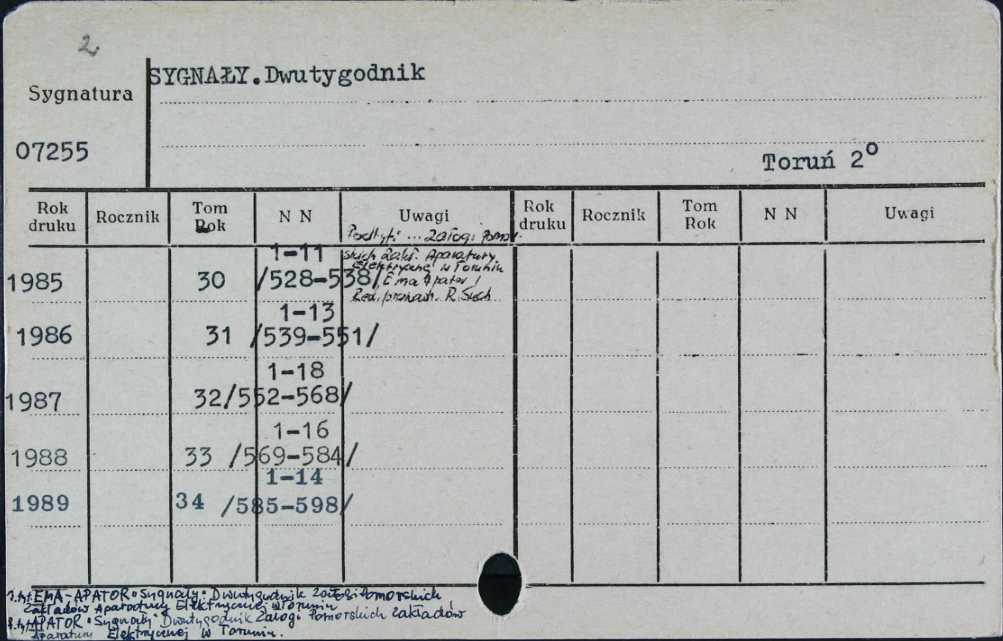 2
SYGNAŁY.Dwutygodnik
Sygnatura
07255
Toruń 2°
Rok druku Rocznik Tom Rok N N Uwagi Rok druku Rocznik Tom Rok N N Uwagi
Podtyt: ... Załogi Pomor-
skich Zakł. Aparatury
Elektrycznej w Toruniu
Ema Apator /
Red. R. Such
1-11
1985 30 /528-538/
1-13
1986 31 /539-551/
1-18
1987 32/552-568/
1-16
1988 33 /569-584/
1-14
1989 34 /585-598/
EMA-APATOR "Sygnały" Dwutygodnik Załogi Pomorskich
Zakładów Aparatury Elektrycznej w Toruniu
APATOR "Sygnały" Dwutygodnik Załogi Pomorskich Zakładów
Aparatury Elektrycznej w Toruniu.